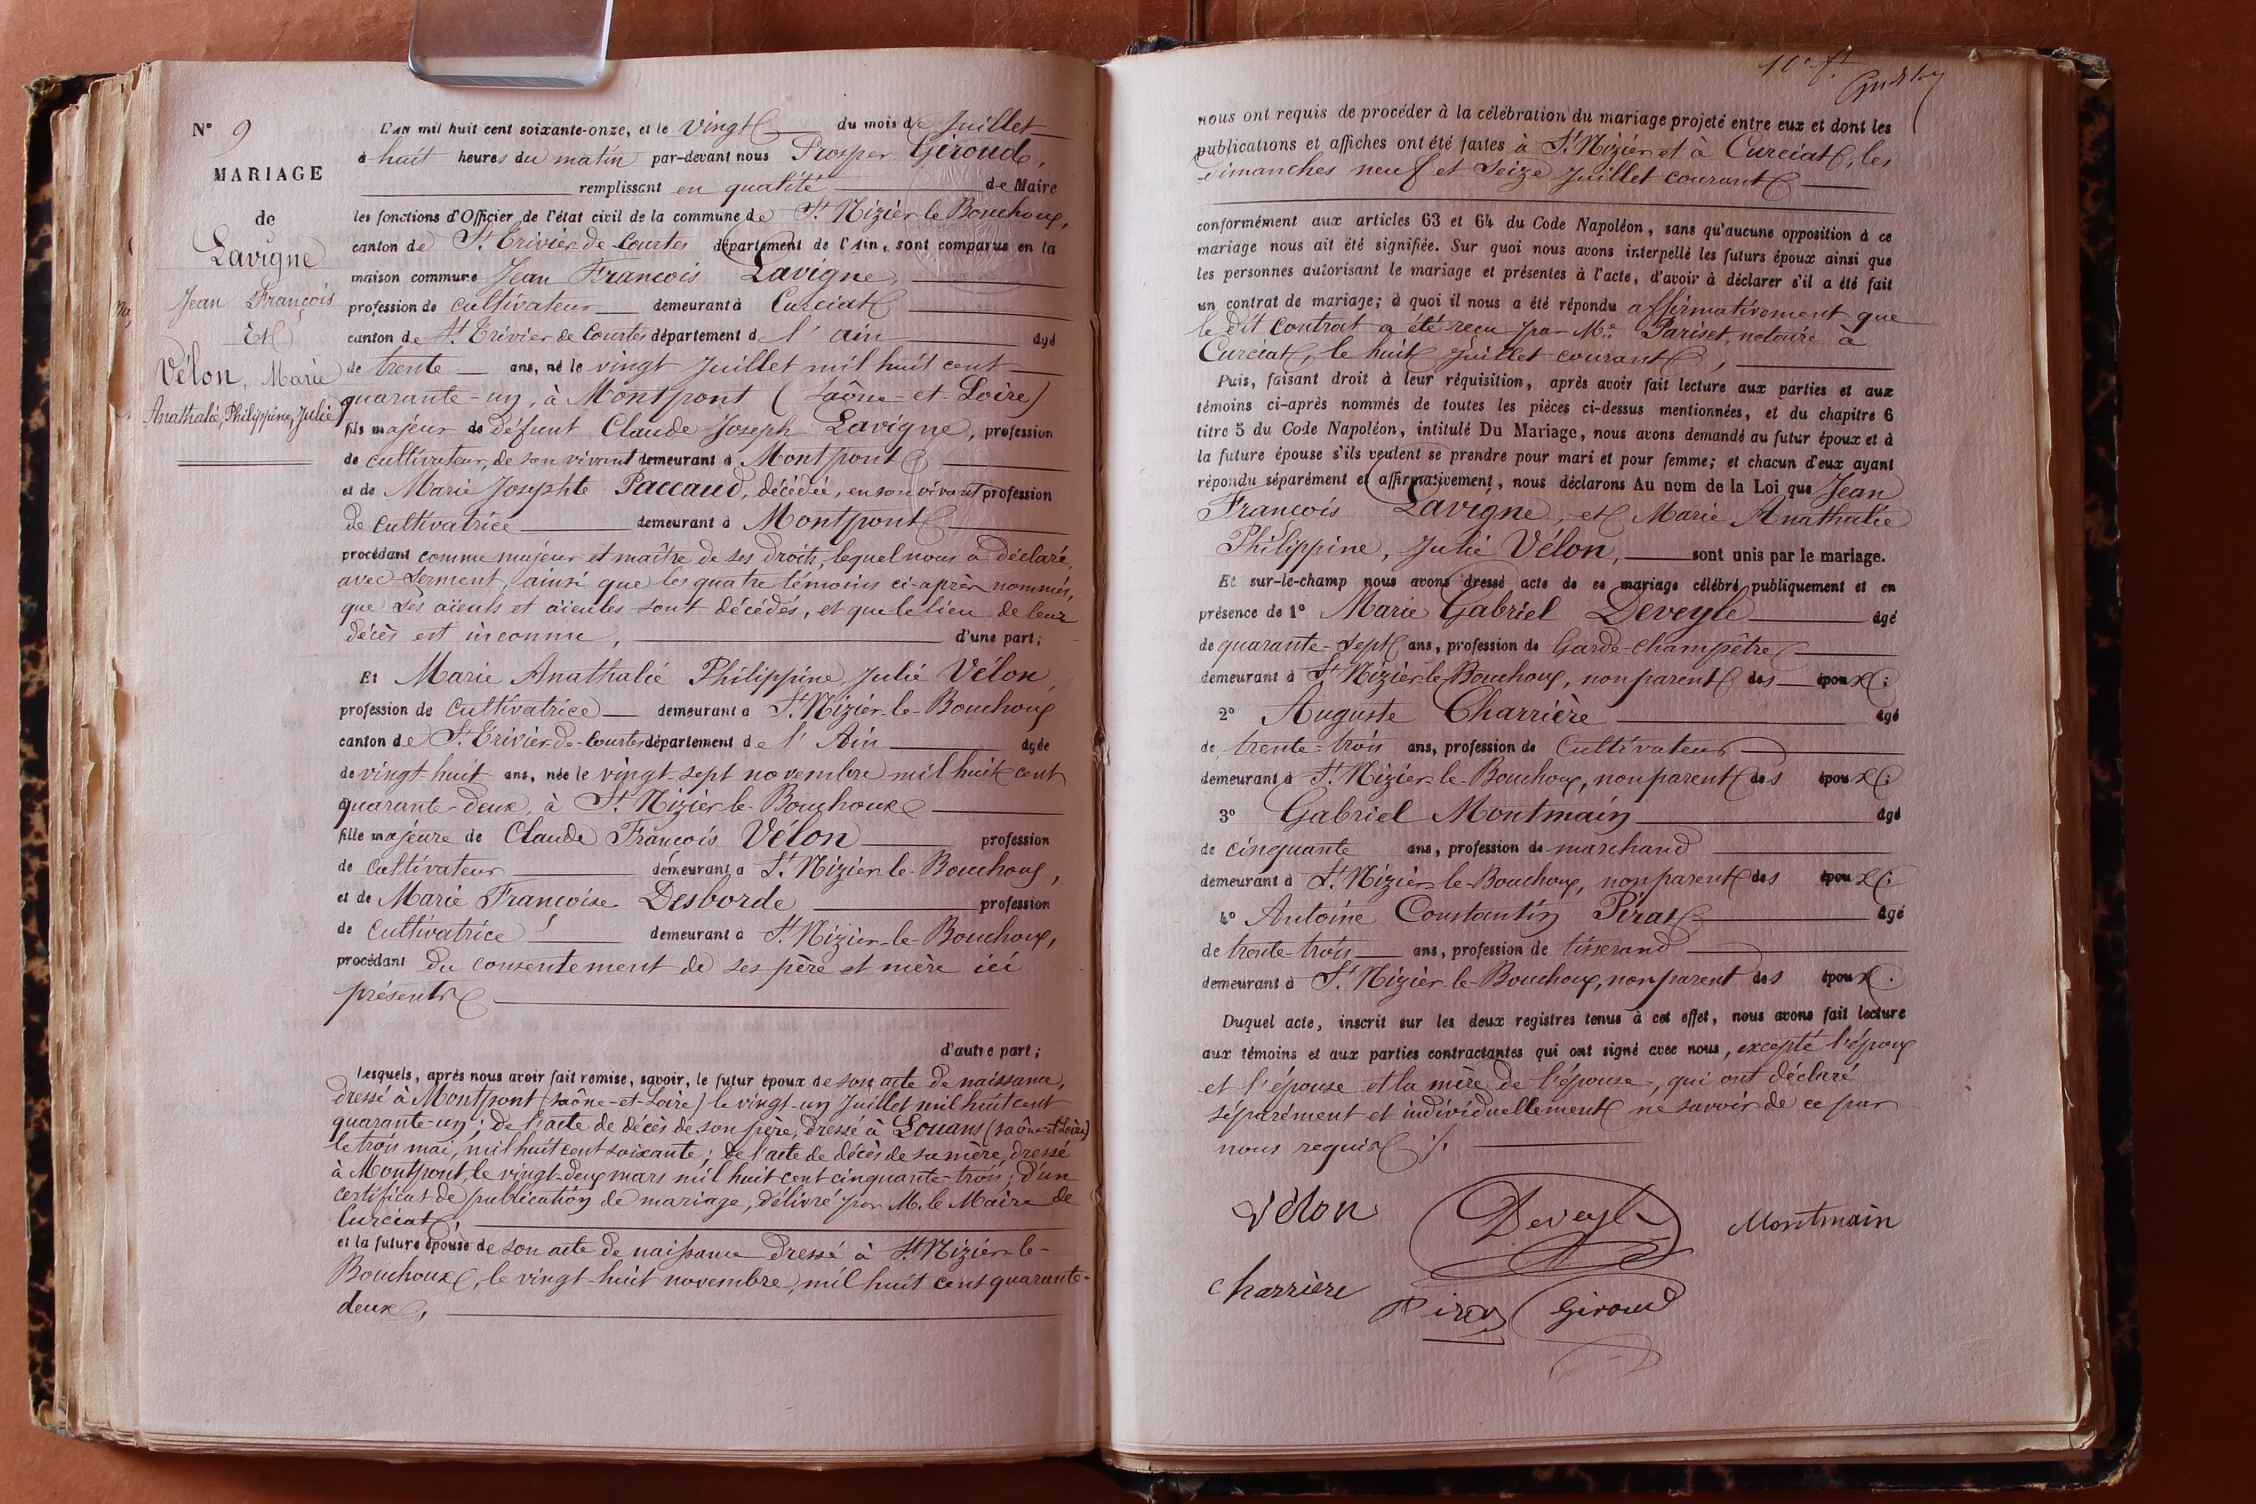 N° 9
MARIAGE
de
Lavigne
Jean François
Et
Vélon, Marie
Anathalie, Philippine, Julie
L'AN mil huit cent soixante-onze, et le vingt du mois de Juillet
à huit heures du matin par-devant nous Prosper Giroud,
remplissant en qualité de Maire
les fonctions d'Officier de l'état civil de la commune de St Nizier le Bouchoux,
canton de St Trivier de Courtes département de l'Ain, sont comparus en la
maison commune Jean François Lavigne
profession de cultivateur demeurant à Curciat
canton de St Trivier de Courtes département de l'ain âgé
de trente ans, né le vingt Juillet mil huit cent
quarante-un, à Montpont (Saône-et-Loire)
fils majeur de défunt Claude Joseph Lavigne, profession
de cultivateur, de son vivant demeurant à Montpont
et de Marie Josephte Paccaud, décédée, en son vivant profession
de cultivatrice demeurant à Montpont
procédant comme majeur et maître de ses droits, lequel nous a déclaré,
avec serment, ainsi que les quatre témoins ci-après nommés,
que ses aïeuls et aïeules sont décédés, et que le lieu de leur
décès est inconnu, d'une part;
Et Marie Anathalie Philippine Julie Vélon,
profession de cultivatrice demeurant à St Nizier-le-Bouchoux
canton de St Trivier-de-Courtes département de l'Ain âgée
de vingt-huit ans, née le vingt-sept novembre mil huit cent
quarante-deux, à St Nizier-le-Bouchoux
fille majeure de Claude François Vélon profession
de cultivateur demeurant à St Nizier-le-Bouchoux,
et de Marie Françoise Desborde profession
de cultivatrice demeurant à St Nizier-le-Bouchoux,
procédant du consentement de ses père et mère ici
présents
d'autre part;
Lesquels, après nous avoir fait remise, savoir, le futur époux de son acte de naissance,
dressé à Montpont (Saône-et-Loire) le vingt-un Juillet mil huit cent
quarante-un; de l'acte de décès de son père, dressé à Louans (Saône-et-Loire)
le trois mai, mil huit cent soixante; de l'acte de décès de sa mère, dressé
à Montpont, le vingt-deux mars mil huit cent cinquante-trois; d'un
certificat de publication de mariage, délivré par M. le Maire de
Curciat,
et la future épouse de son acte de naissance dressé à St Nizier-le-
Bouchoux, le vingt-huit novembre, mil huit cent quarante-
deux,
nous ont requis de procéder à la célébration du mariage projeté entre eux et dont les
publications et affiches ont été faites à St Nizier et à Curciat, les
dimanches neuf et Seize Juillet courant
conformément aux articles 63 et 64 du Code Napoléon, sans qu'aucune opposition à ce
mariage nous ait été signifiée. Sur quoi nous avons interpellé les futurs époux ainsi que
les personnes autorisant le mariage et présentes à l'acte, d'avoir à déclarer s'il a été fait
un contrat de mariage; à quoi il nous a été répondu affirmativement que
le dit contrat a été reçu par Me Pariset, notaire à
Curciat, le huit Juillet courant,
Puis, faisant droit à leur réquisition, après avoir fait lecture aux parties et aux
témoins ci-après nommés de toutes les pièces ci-dessus mentionnées, et du chapitre 6
titre 5 du Code Napoléon, intitulé Du Mariage, nous avons demandé au futur époux et à
la future épouse s'ils veulent se prendre pour mari et pour femme; et chacun d'eux ayant
répondu séparément et affirmativement, nous déclarons Au nom de la Loi que Jean
François Lavigne, et Marie Anathalie
Philippine, Julie Vélon, sont unis par le mariage.
Et sur-le-champ nous avons dressé acte de ce mariage célébré publiquement et en
présence de 1° Marie Gabriel Deveyle âgé
de quarante-sept ans, profession de Garde-Champêtre
demeurant à St Nizier-le-Bouchoux, non parent des époux;
2° Auguste Charrière âgé
de trente-trois ans, profession de Cultivateur
demeurant à St Nizier-le-Bouchoux, non parent des époux;
3° Gabriel Montmain âgé
de cinquante ans, profession de marchand
demeurant à St Nizier-le-Bouchoux, non parent des époux;
4° Antoine Constantin Pirat âgé
de trente-trois ans, profession de tisserand
demeurant à St Nizier-le-Bouchoux, non parent des époux.
Duquel acte, inscrit sur les deux registres tenus à cet effet, nous avons fait lecture
aux témoins et aux parties contractantes qui ont signé avec nous, excepté l'époux
et l'épouse et la mère de l'épouse, qui ont déclaré
séparément et individuellement ne savoir de ce par
nous requis ./.
Vélon Deveyle Montmain
Charrière Pirat Giroud